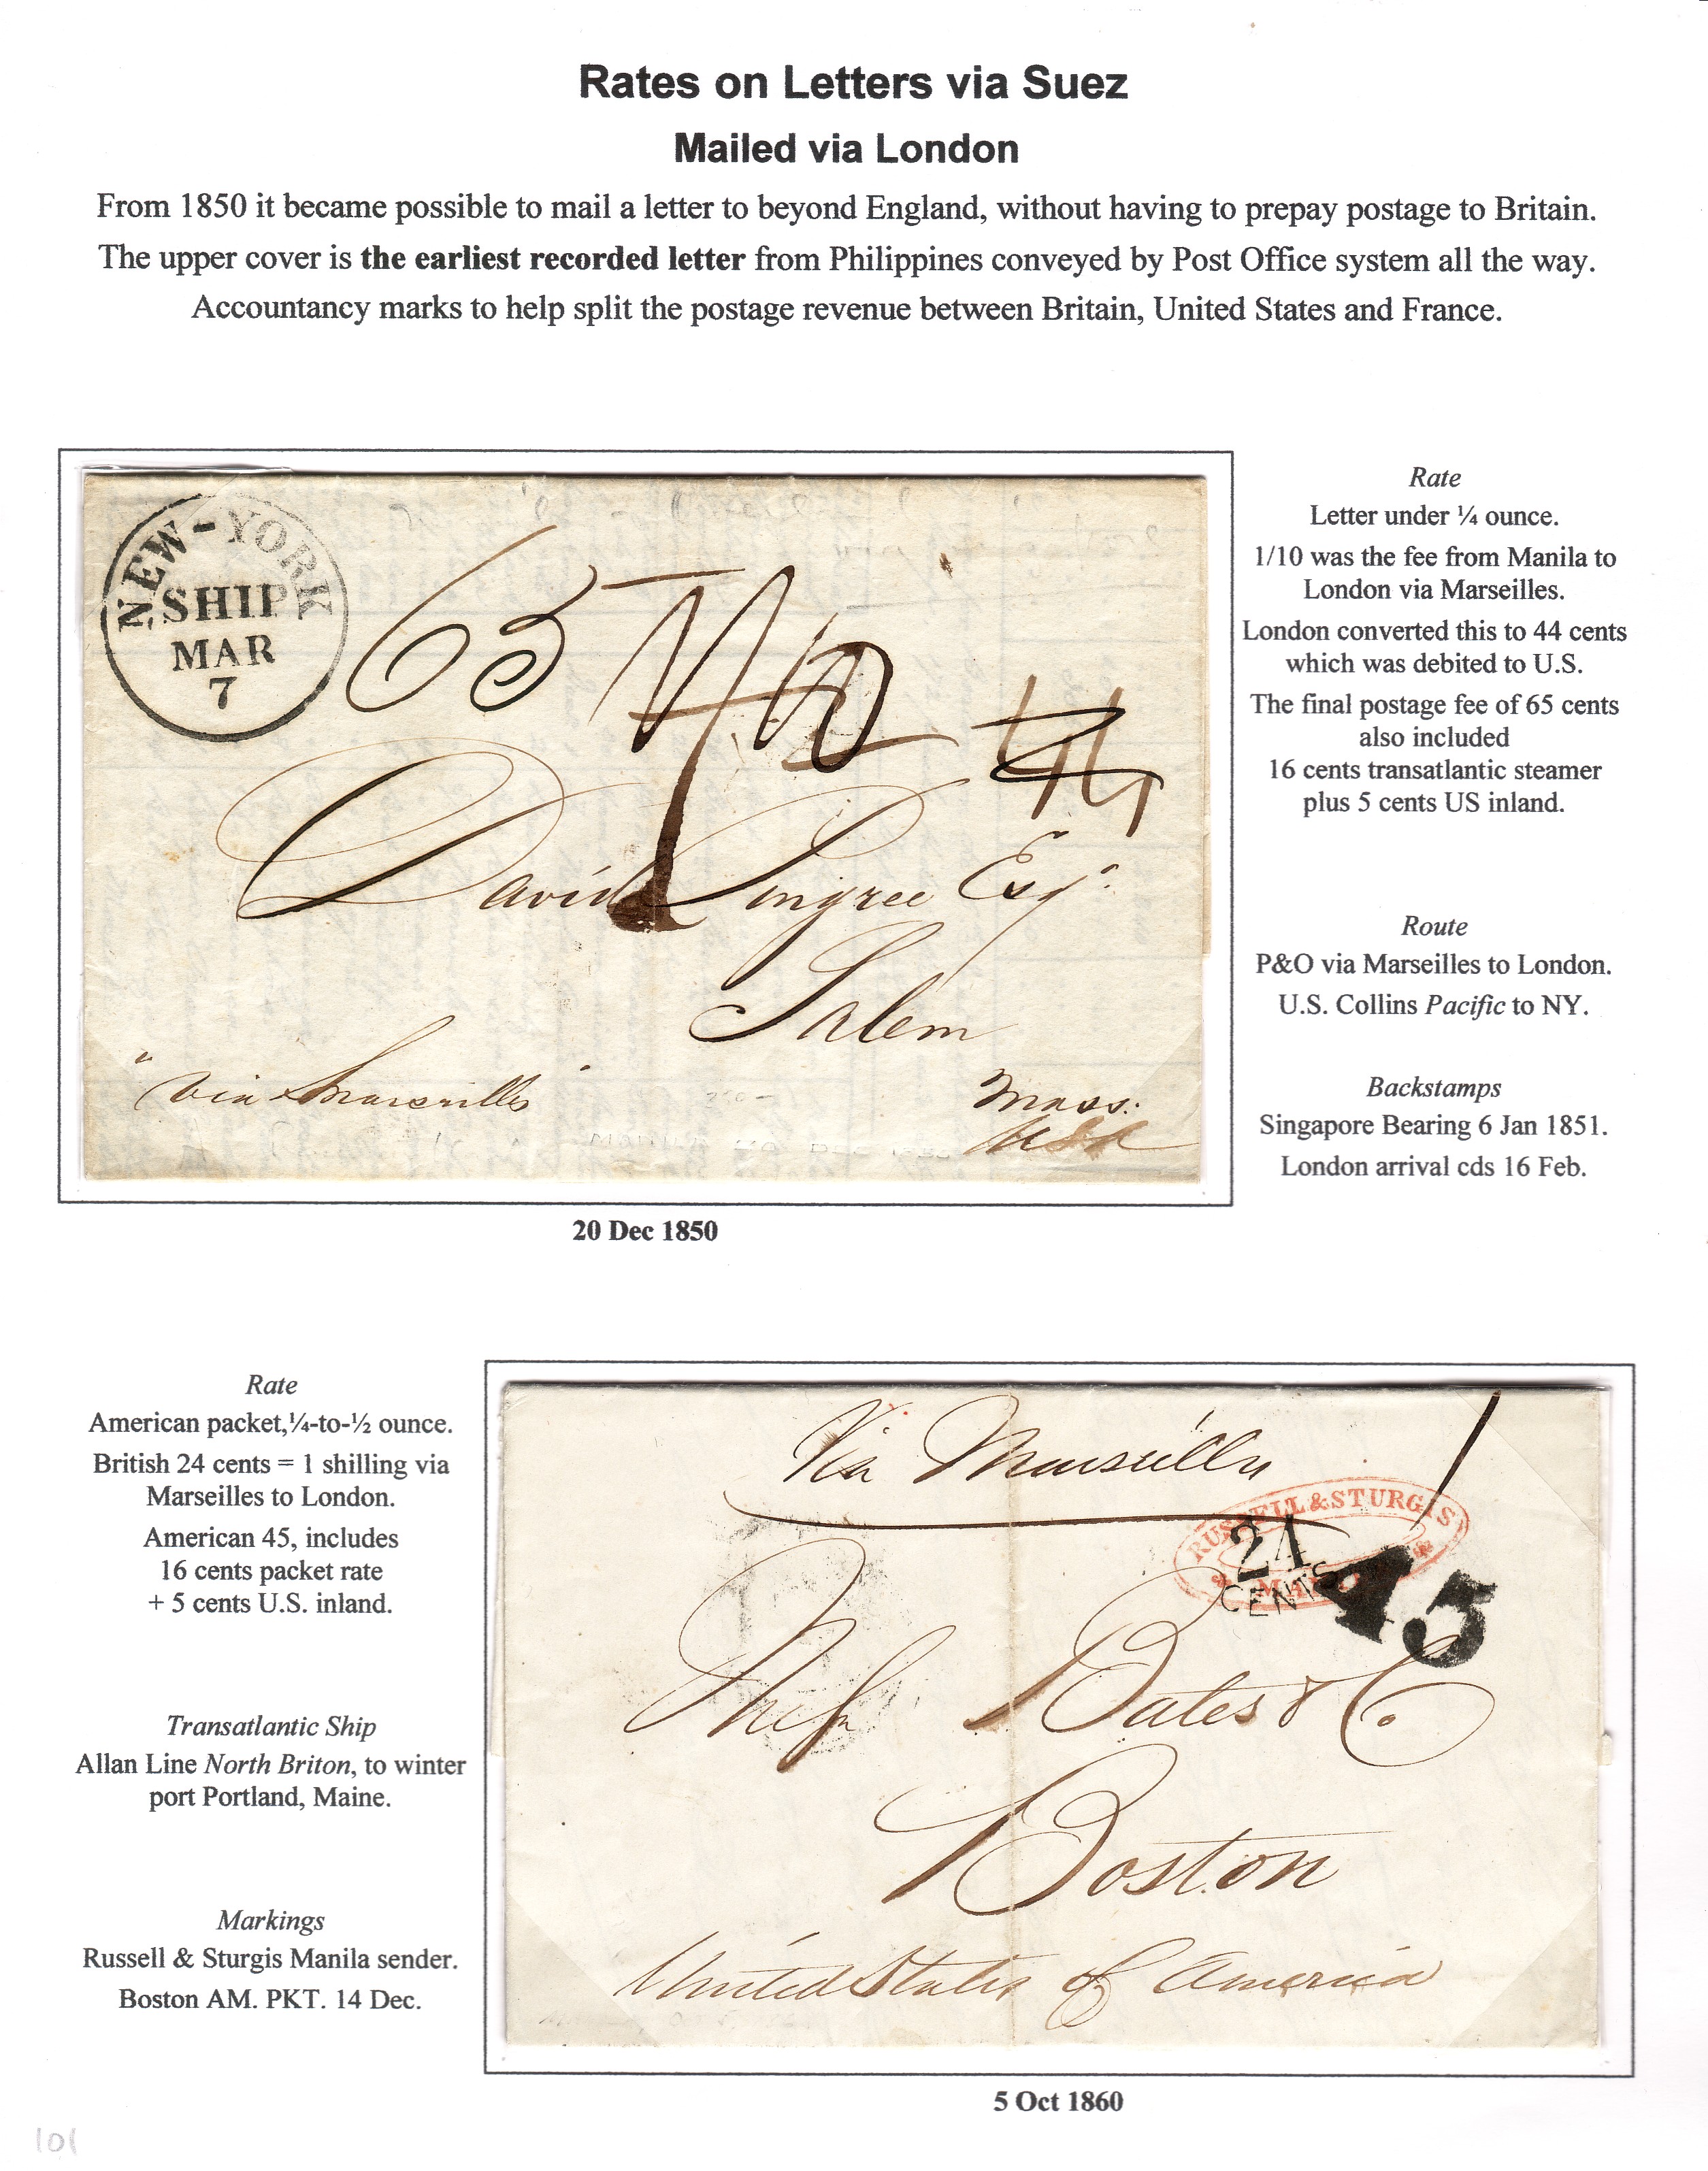 Rates on Letters via Suez
Mailed via London
From 1850 it became possible to mail a letter to beyond England, without having to prepay postage to Britain.
The upper cover is the earliest recorded letter from Philippines conveyed by Post Office system all the way.
Accountancy marks to help split the postage revenue between Britain, United States and France.
NEW-YORK
SHIP
MAR
7
65
1/10
44
David Pingree Esqr.
Salem
"via Marseilles"
Mass.
USA
20 Dec 1850
Rate
Letter under ¼ ounce.
1/10 was the fee from Manila to
London via Marseilles.
London converted this to 44 cents
which was debited to U.S.
The final postage fee of 65 cents
also included
16 cents transatlantic steamer
plus 5 cents US inland.
Route
P&O via Marseilles to London.
U.S. Collins Pacific to NY.
Backstamps
Singapore Bearing 6 Jan 1851.
London arrival cds 16 Feb.
Rate
American packet,¼-to-½ ounce.
British 24 cents = 1 shilling via
Marseilles to London.
American 45, includes
16 cents packet rate
+ 5 cents U.S. inland.
Transatlantic Ship
Allan Line North Briton, to winter
port Portland, Maine.
Markings
Russell & Sturgis Manila sender.
Boston AM. PKT. 14 Dec.
Via Marseilles
RUSSELL & STURGIS
24
CENTS
45
Bates & Co.
Boston
United States of America
5 Oct 1860
101